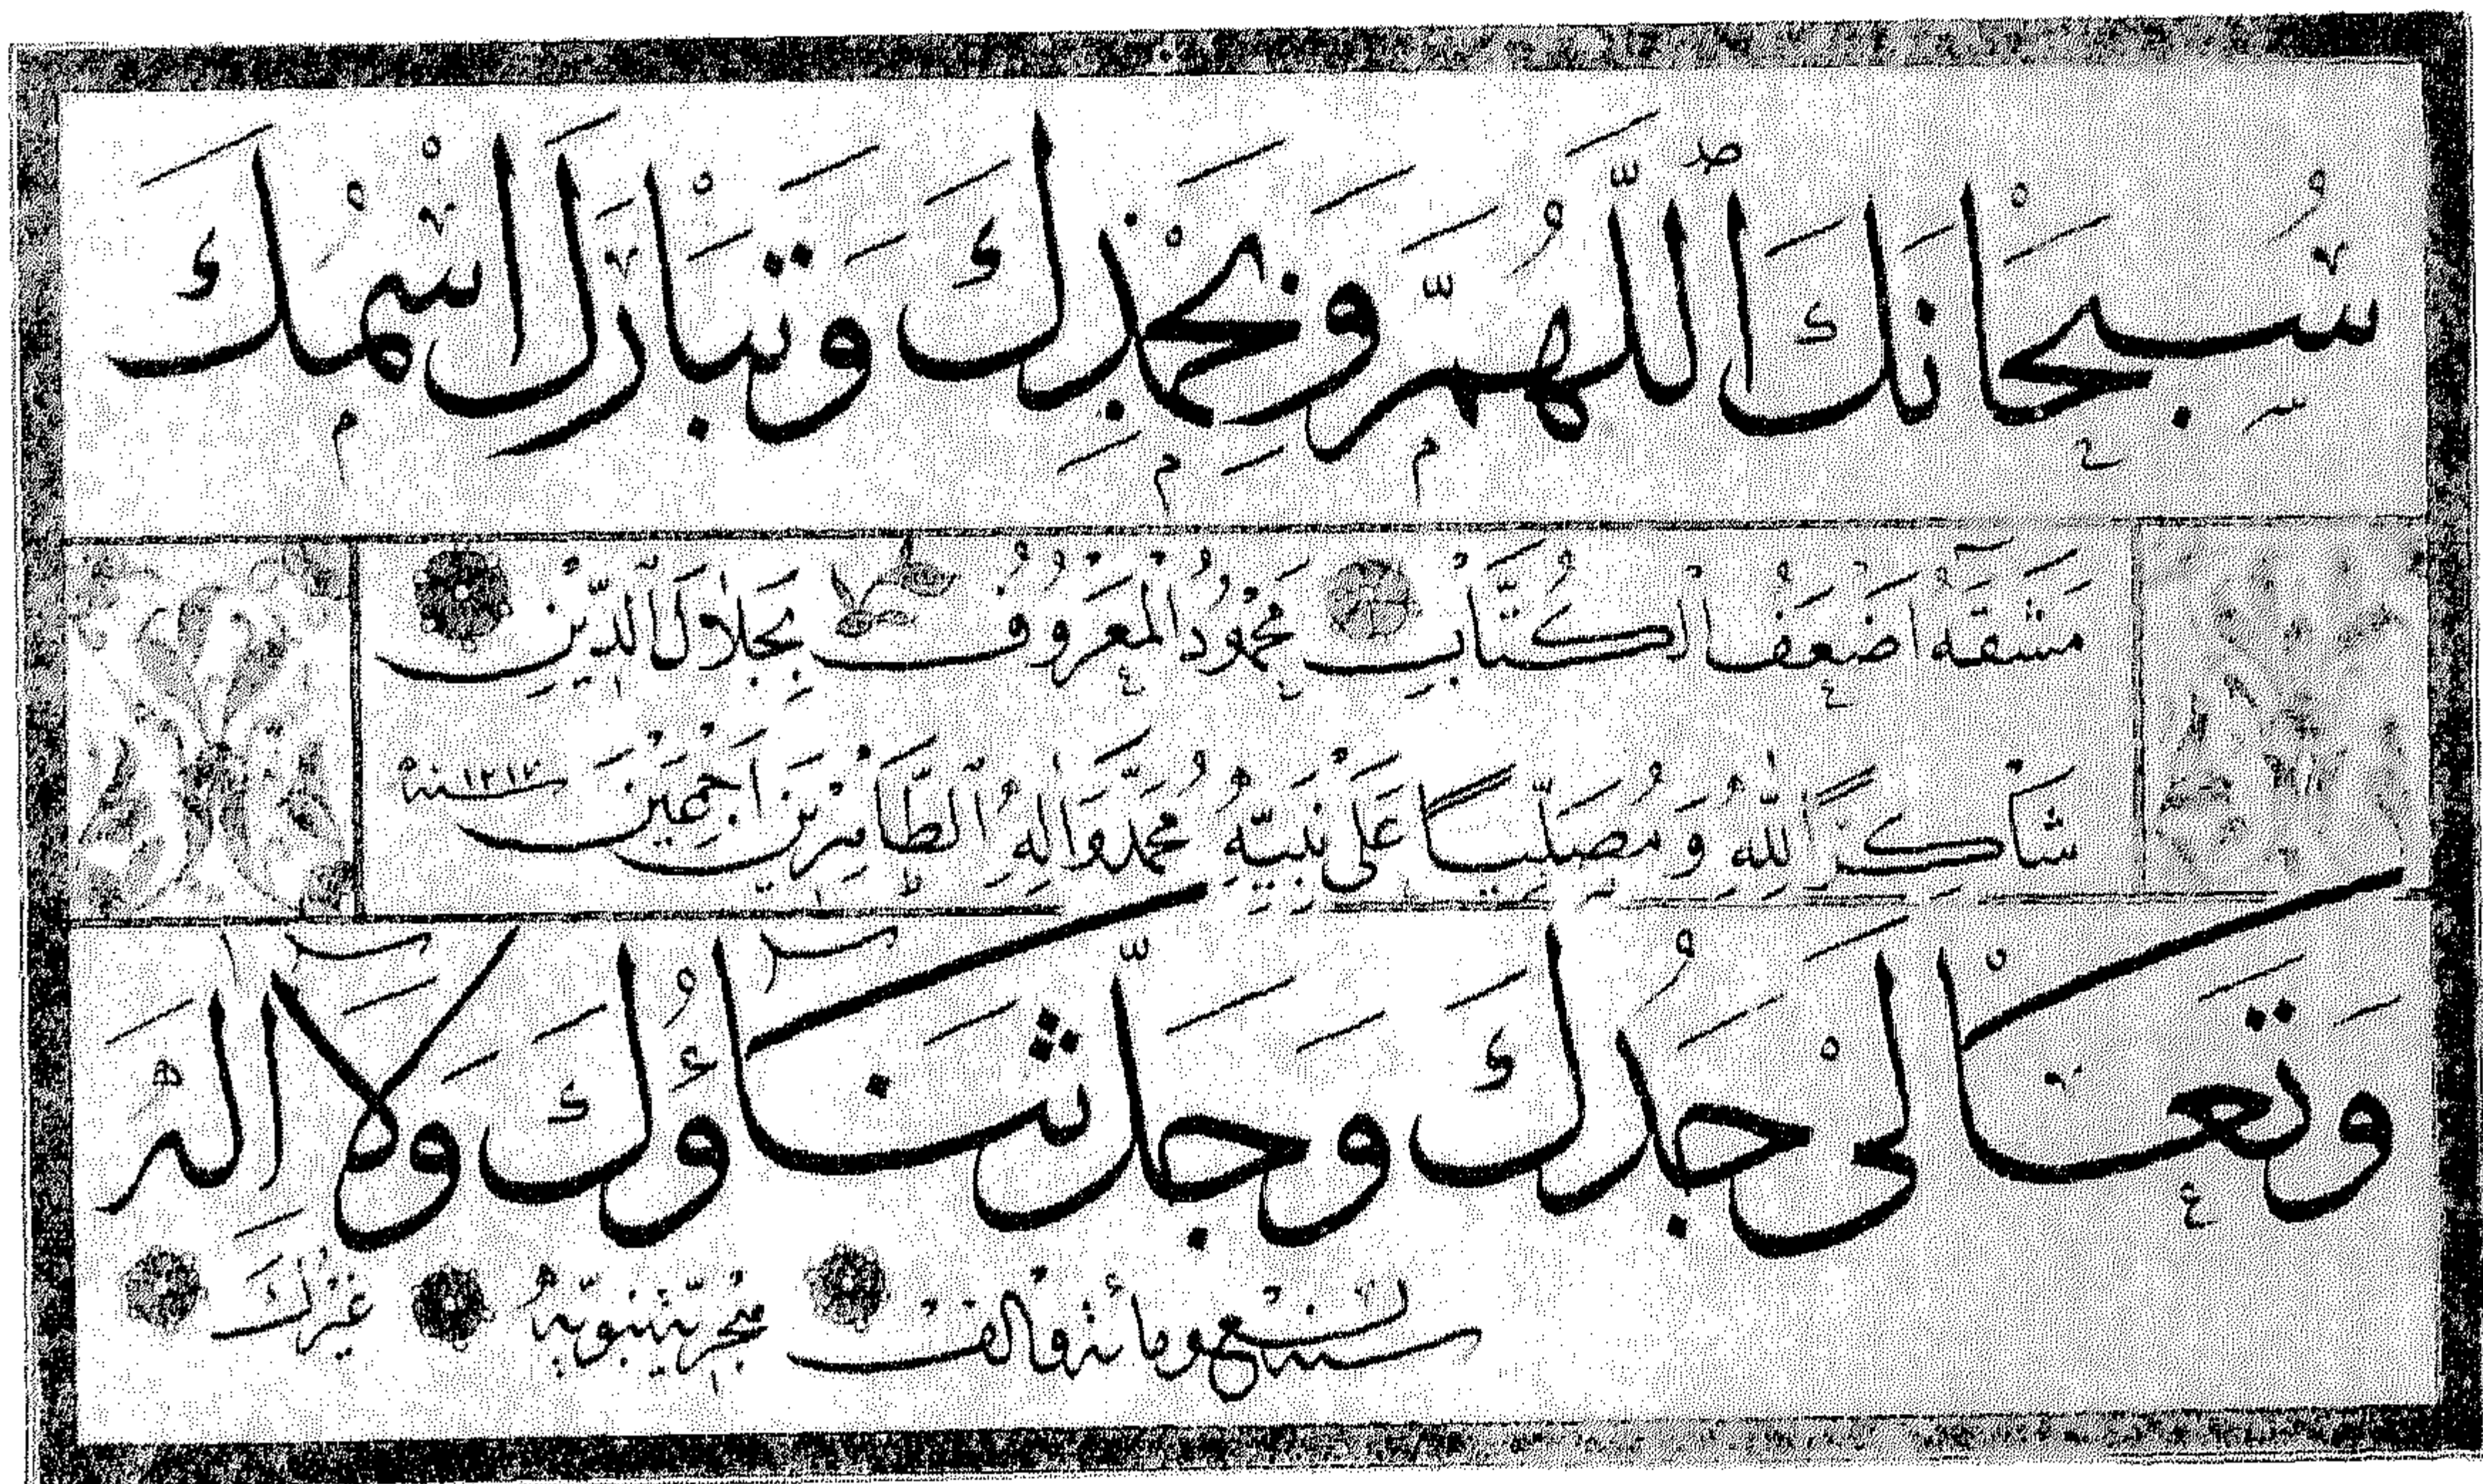 سُبْحَانَكَ اَللّٰهُمَّ وَبِحَمْدِكَ وَتَبَارَكَ اسْمُكَ
مَشَقَهُ اَضْعَفُ الْكُتَّابِ مَحْمُودُ الْمَعْرُوفُ بِجَلَالِ الدِّينِ
شَاكِرًا لِلّٰهِ وَمُصَلِّيًا عَلَى نَبِيِّهِ مُحَمَّدٍ وَاٰلِهِ الطَّاهِرِينَ اَجْمَعِينَ سنه
وَتَعَالٰى جَدُّكَ وَجَلَّ ثَنَاؤُكَ وَلَا اِلٰهَ
غَيْرُكَ
سنة تسع ومائة والف هجرية نبوية